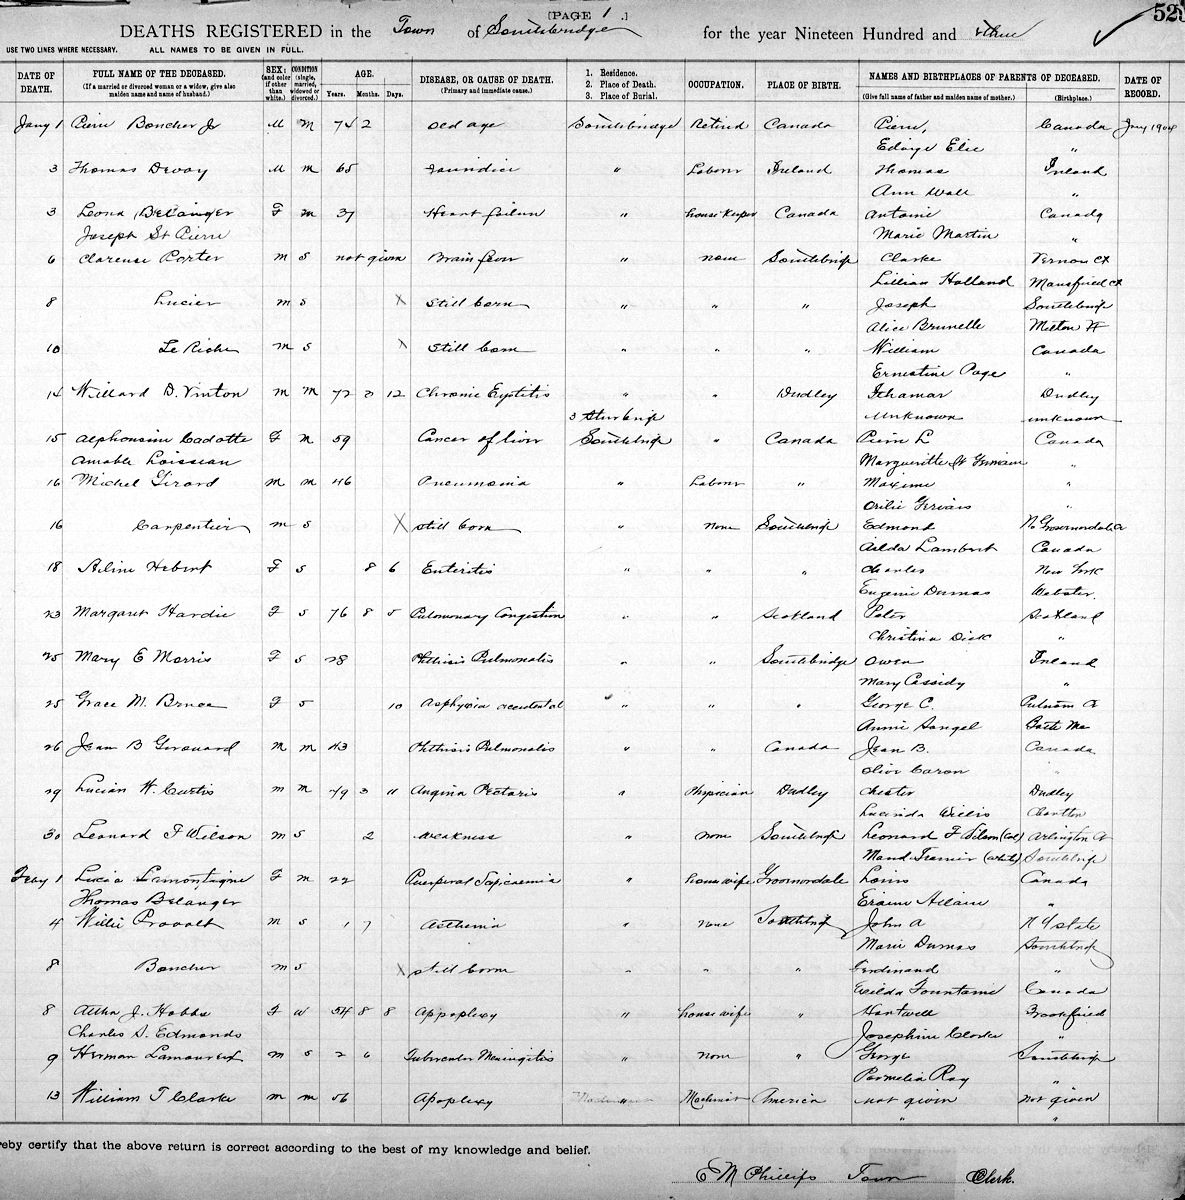 [PAGE 1 .]
523
DEATHS REGISTERED in the Town of Southbridge for the year Nineteen Hundred and three
USE TWO LINES WHERE NECESSARY. ALL NAMES TO BE GIVEN IN FULL.
DATE OF DEATH. FULL NAME OF THE DECEASED. (If a married or divorced woman or a widow, give also maiden name and name of husband.) SEX: (and color if other than white.) CONDITION (single, married, widowed or divorced.) AGE. Years. Months. Days. DISEASE, OR CAUSE OF DEATH. (Primary and immediate cause.) 1. Residence. 2. Place of Death. 3. Place of Burial. OCCUPATION. PLACE OF BIRTH. NAMES AND BIRTHPLACES OF PARENTS OF DECEASED. (Give full name of father and maiden name of mother.) (Birthplace.) DATE OF RECORD.
Jany 1 Pierre Boucher Jr M M 74 2 old age Southbridge Retired Canada Pierre, Canada Jany 1904
Edwige Elie "
3 Thomas Devoy M M 65 Jaundice " Laborer Ireland Thomas Ireland
Ann Wall "
3 Leona Belanger F M 37 Heart failure " housekeeper Canada Antoine Canada
Joseph St Pierre Marie Martin "
6 Clarence Porter M S not given Brain fever " none Southbridge Clarke Vernon Ct
Lillian Holland Mansfield Ct
8 Lucier M S X Still born " " " Joseph Southbridge
Alice Brunelle Milton Vt
10 Le Riche M S X Still born " " " William Canada
Ernestine Page "
14 Willard D. Vinton M M 72 3 12 Chronic Cystitis " " Dudley Ithamar Dudley
3 Sturbridge Unknown unknown
15 Alphonsine Cadotte F M 59 Cancer of liver Southbridge " Canada Pierre L Canada
Amable Loiseau Margueritte St Germain "
16 Michel Girard M M 46 Pneumonia " Laborer " Maxime "
Orilie Gervais "
16 Carpentier M S X Still born " none Southbridge Edmond No Grosvenordale Ct
Azilda Lambert Canada
18 Aline Hebert F S 8 6 Enteritis " " " Charles New York
Eugenie Dumas Webster
23 Margaret Hardie F S 76 8 5 Pulmonary Congestion " " Scotland Peter Scotland
Christina Dick "
25 Mary E Morris F S 28 Phthisis Pulmonalis " " Southbridge Owen Ireland
Mary Cassidy "
25 Grace M. Bruce F S 10 Asphyxia accidental " " " George C. Putnam Ct
Annie Sangel
26 Jean B Girouard M M 43 Phthisis Pulmonalis " " Canada Jean B. Canada
Olive Caron "
29 Lucian W. Curtis M M 79 3 11 Angina Pectoris " Physician Dudley Chester Dudley
Lucinda Willis Charlton
30 Leonard F Wilson M S 2 weakness " none Southbridge Leonard F Wilson (col) Arlington
Maud Travnier (white) Southbridge
Feby 1 Lucia Lamontagne F M 22 Puerperal Septicaemia " housewife Grosvenordale Louis Canada
Thomas Belanger Allaire "
4 Willie Provolt M S 1 7 Asthenia " none Southbridge John A N Y state
Marie Dumas Southbridge
8 Boucher M S X Still born " " " Ferdinand "
Exilda Fountaine Canada
8 Aetha J. Hobbs F W 54 8 8 Appoplexy " housewife " Hartwell Brookfield
Charles S. Edmonds Josephine Clarke "
9 Herman Lamoureux M S 2 6 Tubercular Meningitis " none " George Southbridge
Parmelia Ray "
13 William T Clarke M M 56 Apoplexy " Machinist America not given not given
" "
reby certify that the above return is correct according to the best of my knowledge and belief.
E M Phillips Town Clerk.